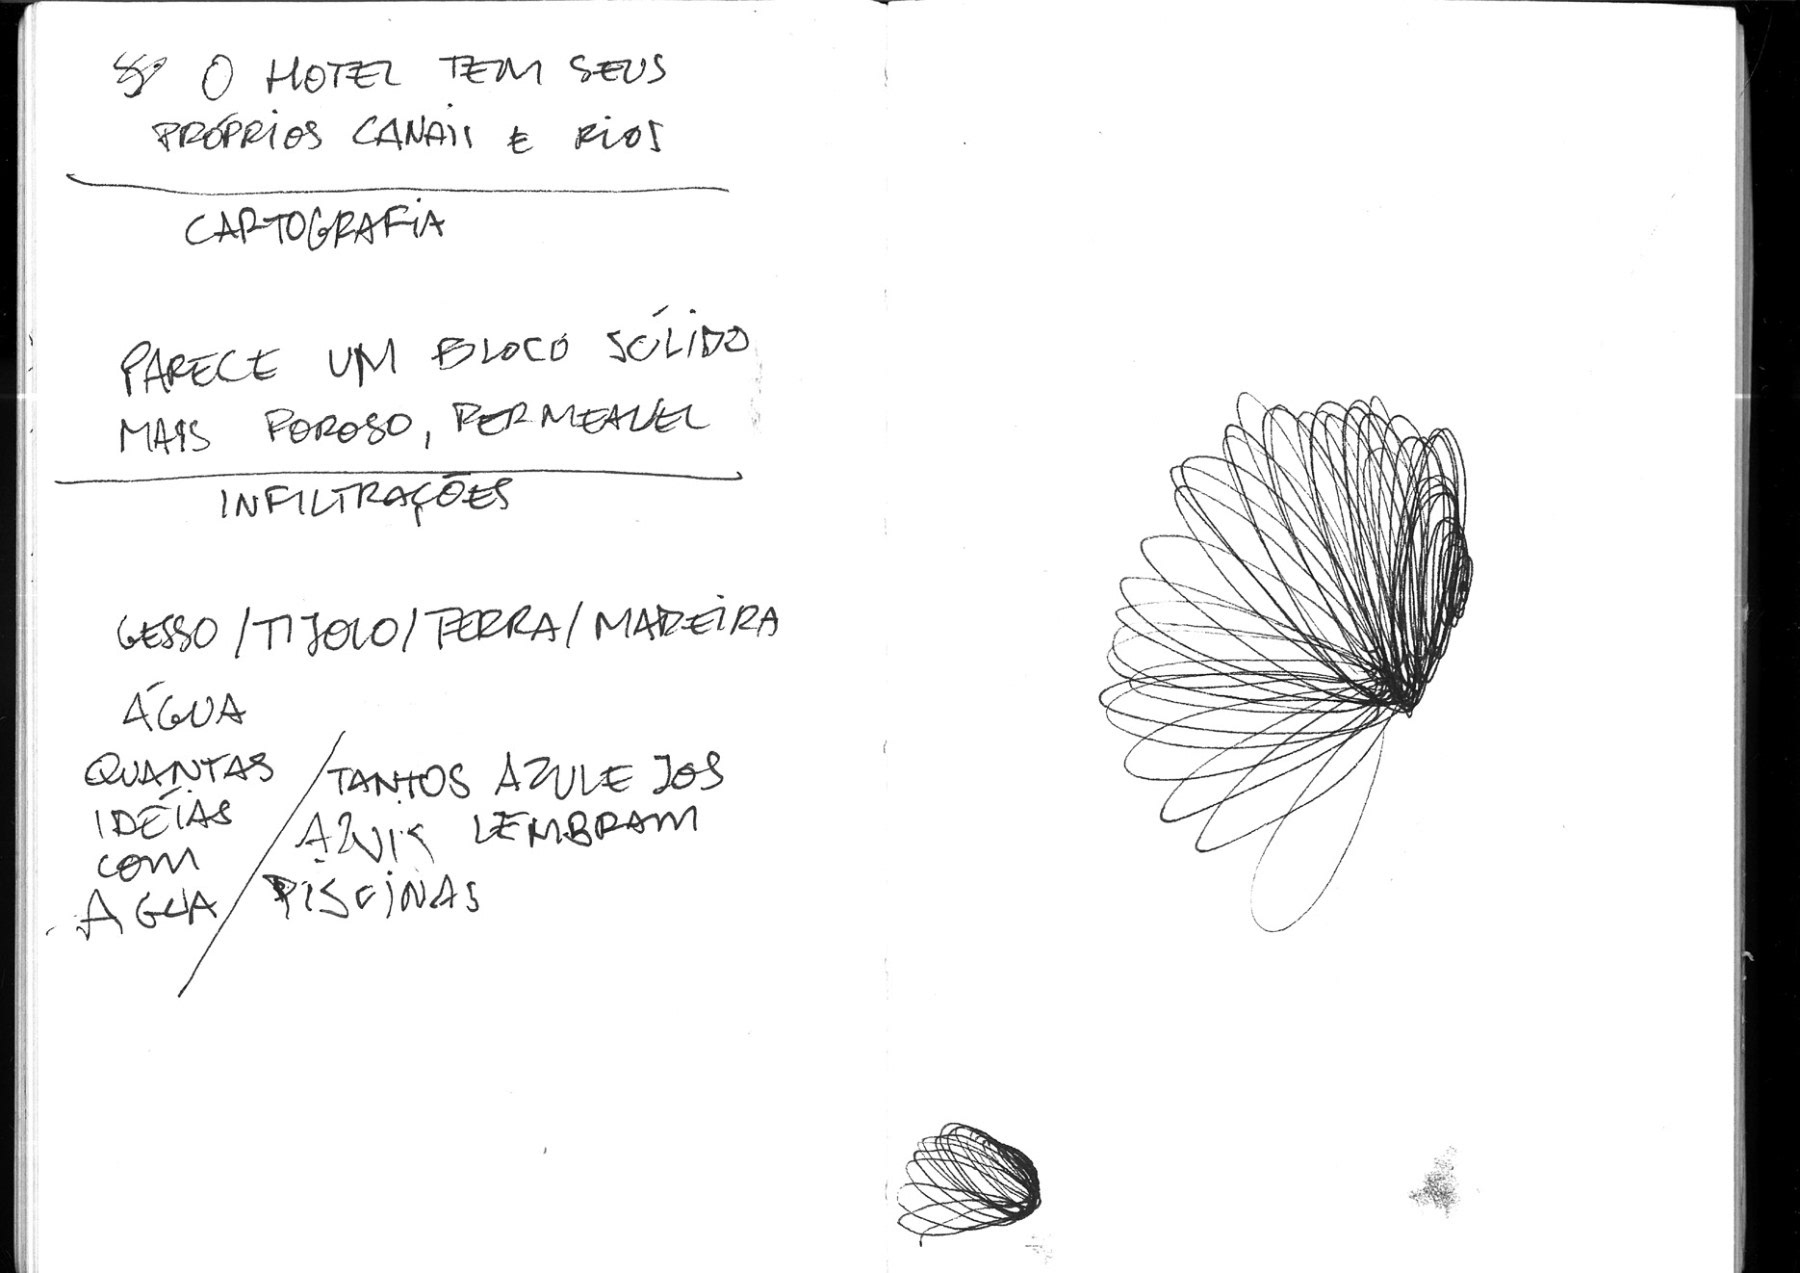 O HOTEL TEM SEUS
PRÓPRIOS CANAIS E RIOS
CARTOGRAFIA
PARECE UM BLOCO SÓLIDO
MAIS POROSO, PERMEAVEL
INFILTRAÇÕES
GESSO / TIJOLO / TERRA / MADEIRA
ÁGUA
QUANTAS
IDÉIAS
COM
AGUA
TANTOS AZULEJOS
AZUIS LEMBRAM
PISCINAS